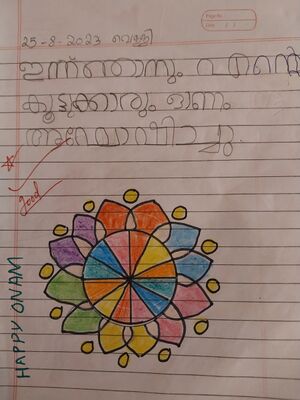 Page No.
Date
25-8-2023 വെള്ളി
ഇന്ന് ഞാനും എന്റെ
കൂട്ടുകാരും ഓണം
ആഘോഷിച്ചു.
Good
HAPPY ONAM